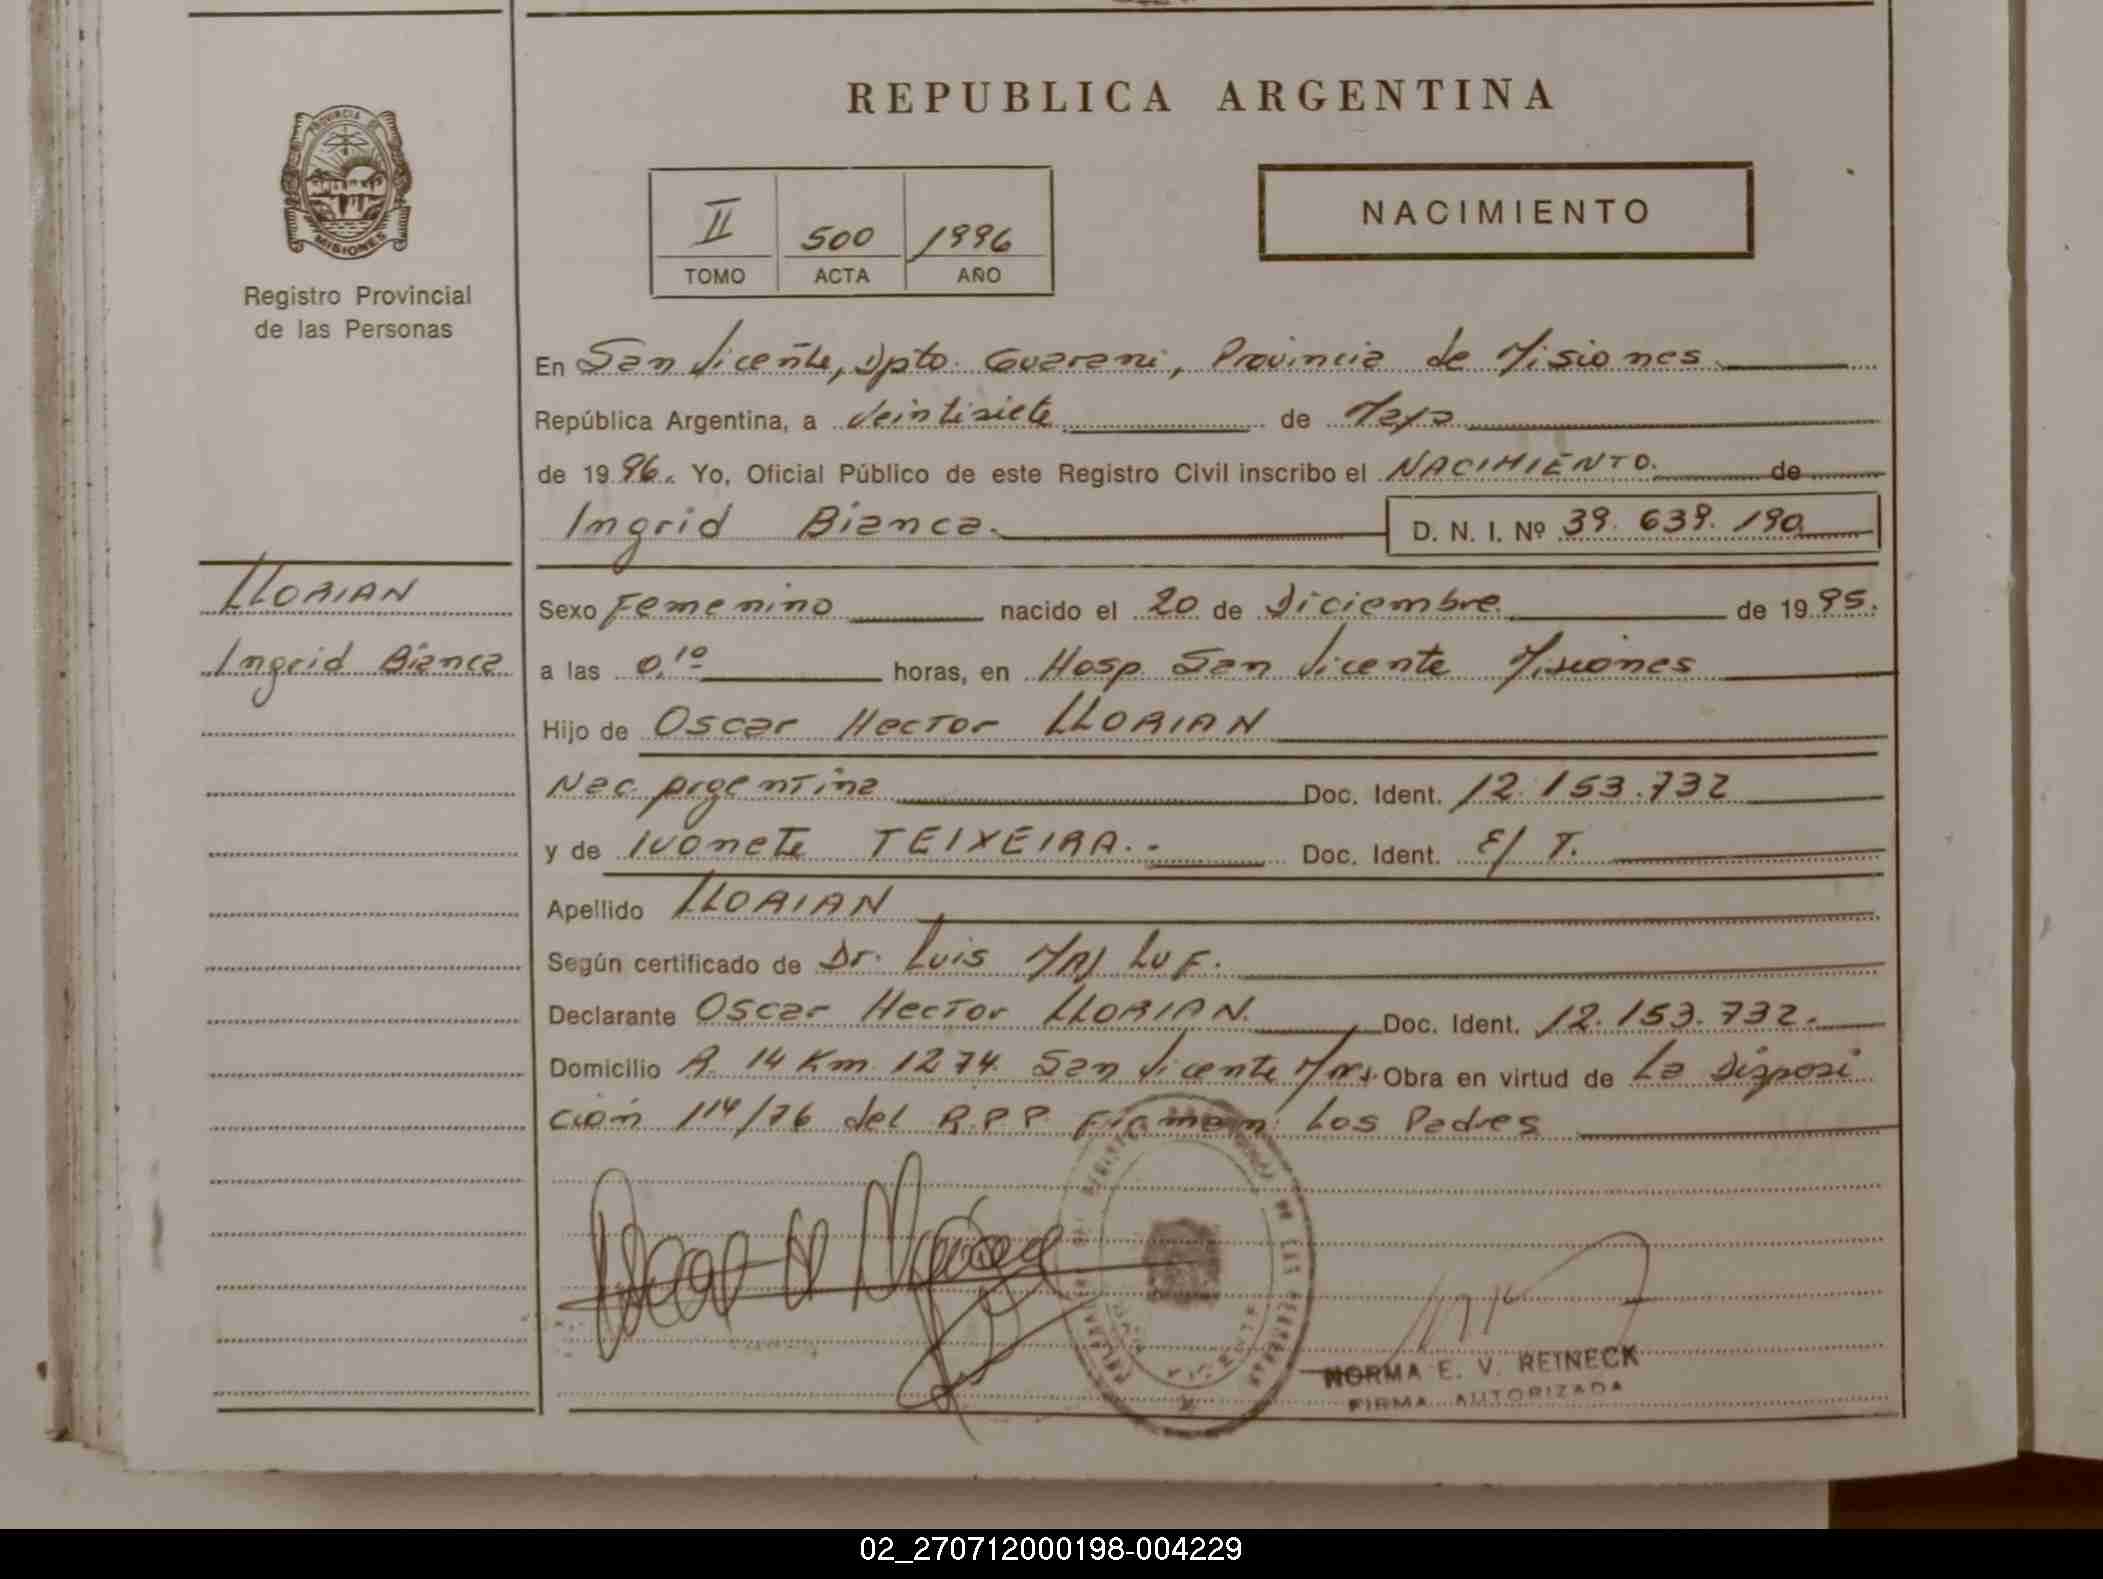 REPUBLICA ARGENTINA
PROVINCIA DE
MISIONES
Registro Provincial
de las Personas
II 500 1996
TOMO ACTA AÑO
NACIMIENTO
En San Vicente, Dpto. Guarani, Provincia de Misiones
República Argentina, a Veintisiete de Mayo
de 1996. Yo, Oficial Público de este Registro Civil inscribo el NACIMIENTO. de
Ingrid Bianca. D. N. I. Nº 39. 639. 190
LLORIAN
Ingrid Bianca
Sexo Femenino nacido el 20 de Diciembre de 1995.
a las 0,10 horas, en Hosp. San Vicente Misiones
Hijo de Oscar Hector LLORIAN
Nac. Argentina Doc. Ident. 12.153.732
y de Ivonete TEIXEIRA.- Doc. Ident. E/ T.
Apellido LLORIAN
Según certificado de Dr. Luis
Declarante Oscar Hector LLORIAN. Doc. Ident. 12.153.732.
Domicilio R. 14 Km 1274. San Vicente Mns. Obra en virtud de La Disposi
ción 114/76 del R.P.P. Firman: Los Padres
SAN VICENTE
NORMA E. V. REINECK
FIRMA AUTORIZADA
02_270712000198-004229